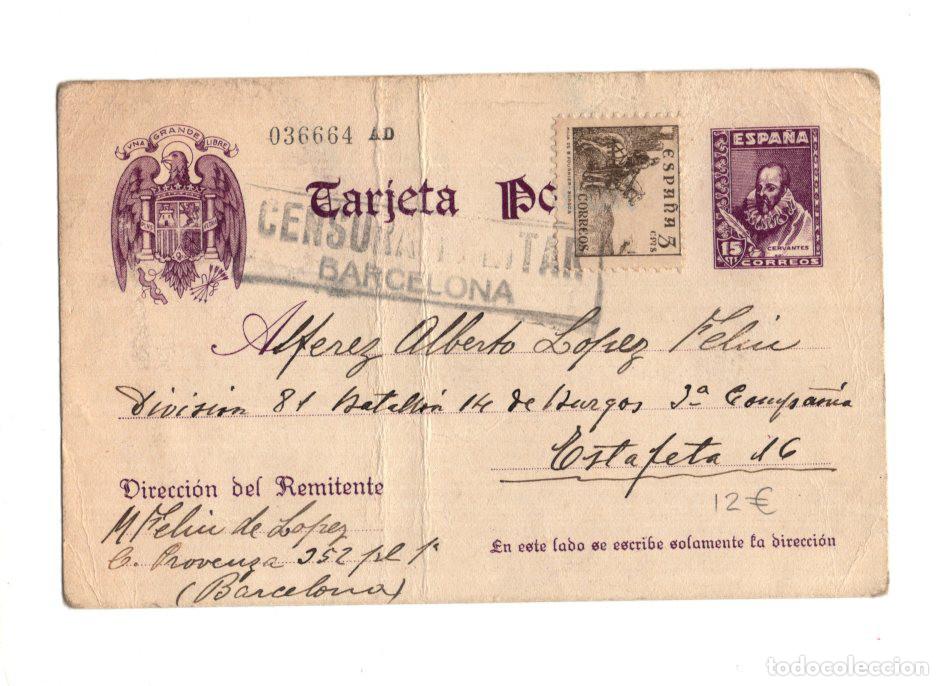 VNA GRANDE LIBRE
036664 AD
ESPAÑA
CERVANTES
15 CTS
CORREOS
ESPAÑA 5 CTS
CORREOS
Tarjeta Po
CENSURA MILITAR
BARCELONA
Alferez Alberto Lopez Feliu
Division 81 Batallón 14 de Burgos 3ª Compañia
Estafeta 16
12 €
Dirección del Remitente
M Feliu de Lopez
C. Provenza 352 pl 1ª
(Barcelona)
En este lado se escribe solamente la dirección
todocoleccion